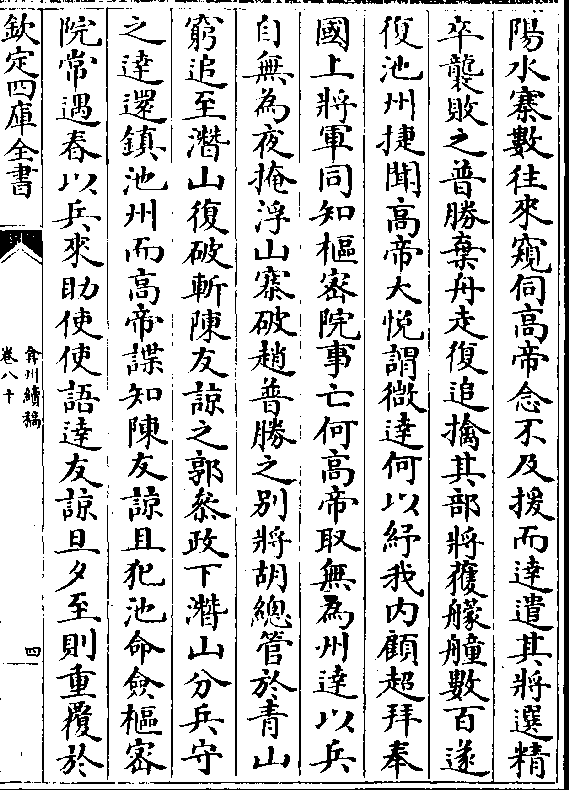 陽水寨數往來窺伺高帝念不及援而達遣其將選精
卒襲敗之普勝棄舟走復追擒其部將獲艨艟數百遂
復池州捷聞高帝大悅謂微達何以紓我内顧超拜奉
國上將軍同知樞密院事亡何高帝取無為州達以兵
自無為夜掩浮山寨破趙普勝之别將胡總管於青山
窮追至潛山復破斬陳友諒之郭叅政下潛山分兵守
之達還鎮池州而高帝諜知陳友諒且犯池命僉樞密
院常遇春以兵來助使使語達友諒旦夕至則重覆於
欽定四庫全書
弇州續稿
卷八十
四